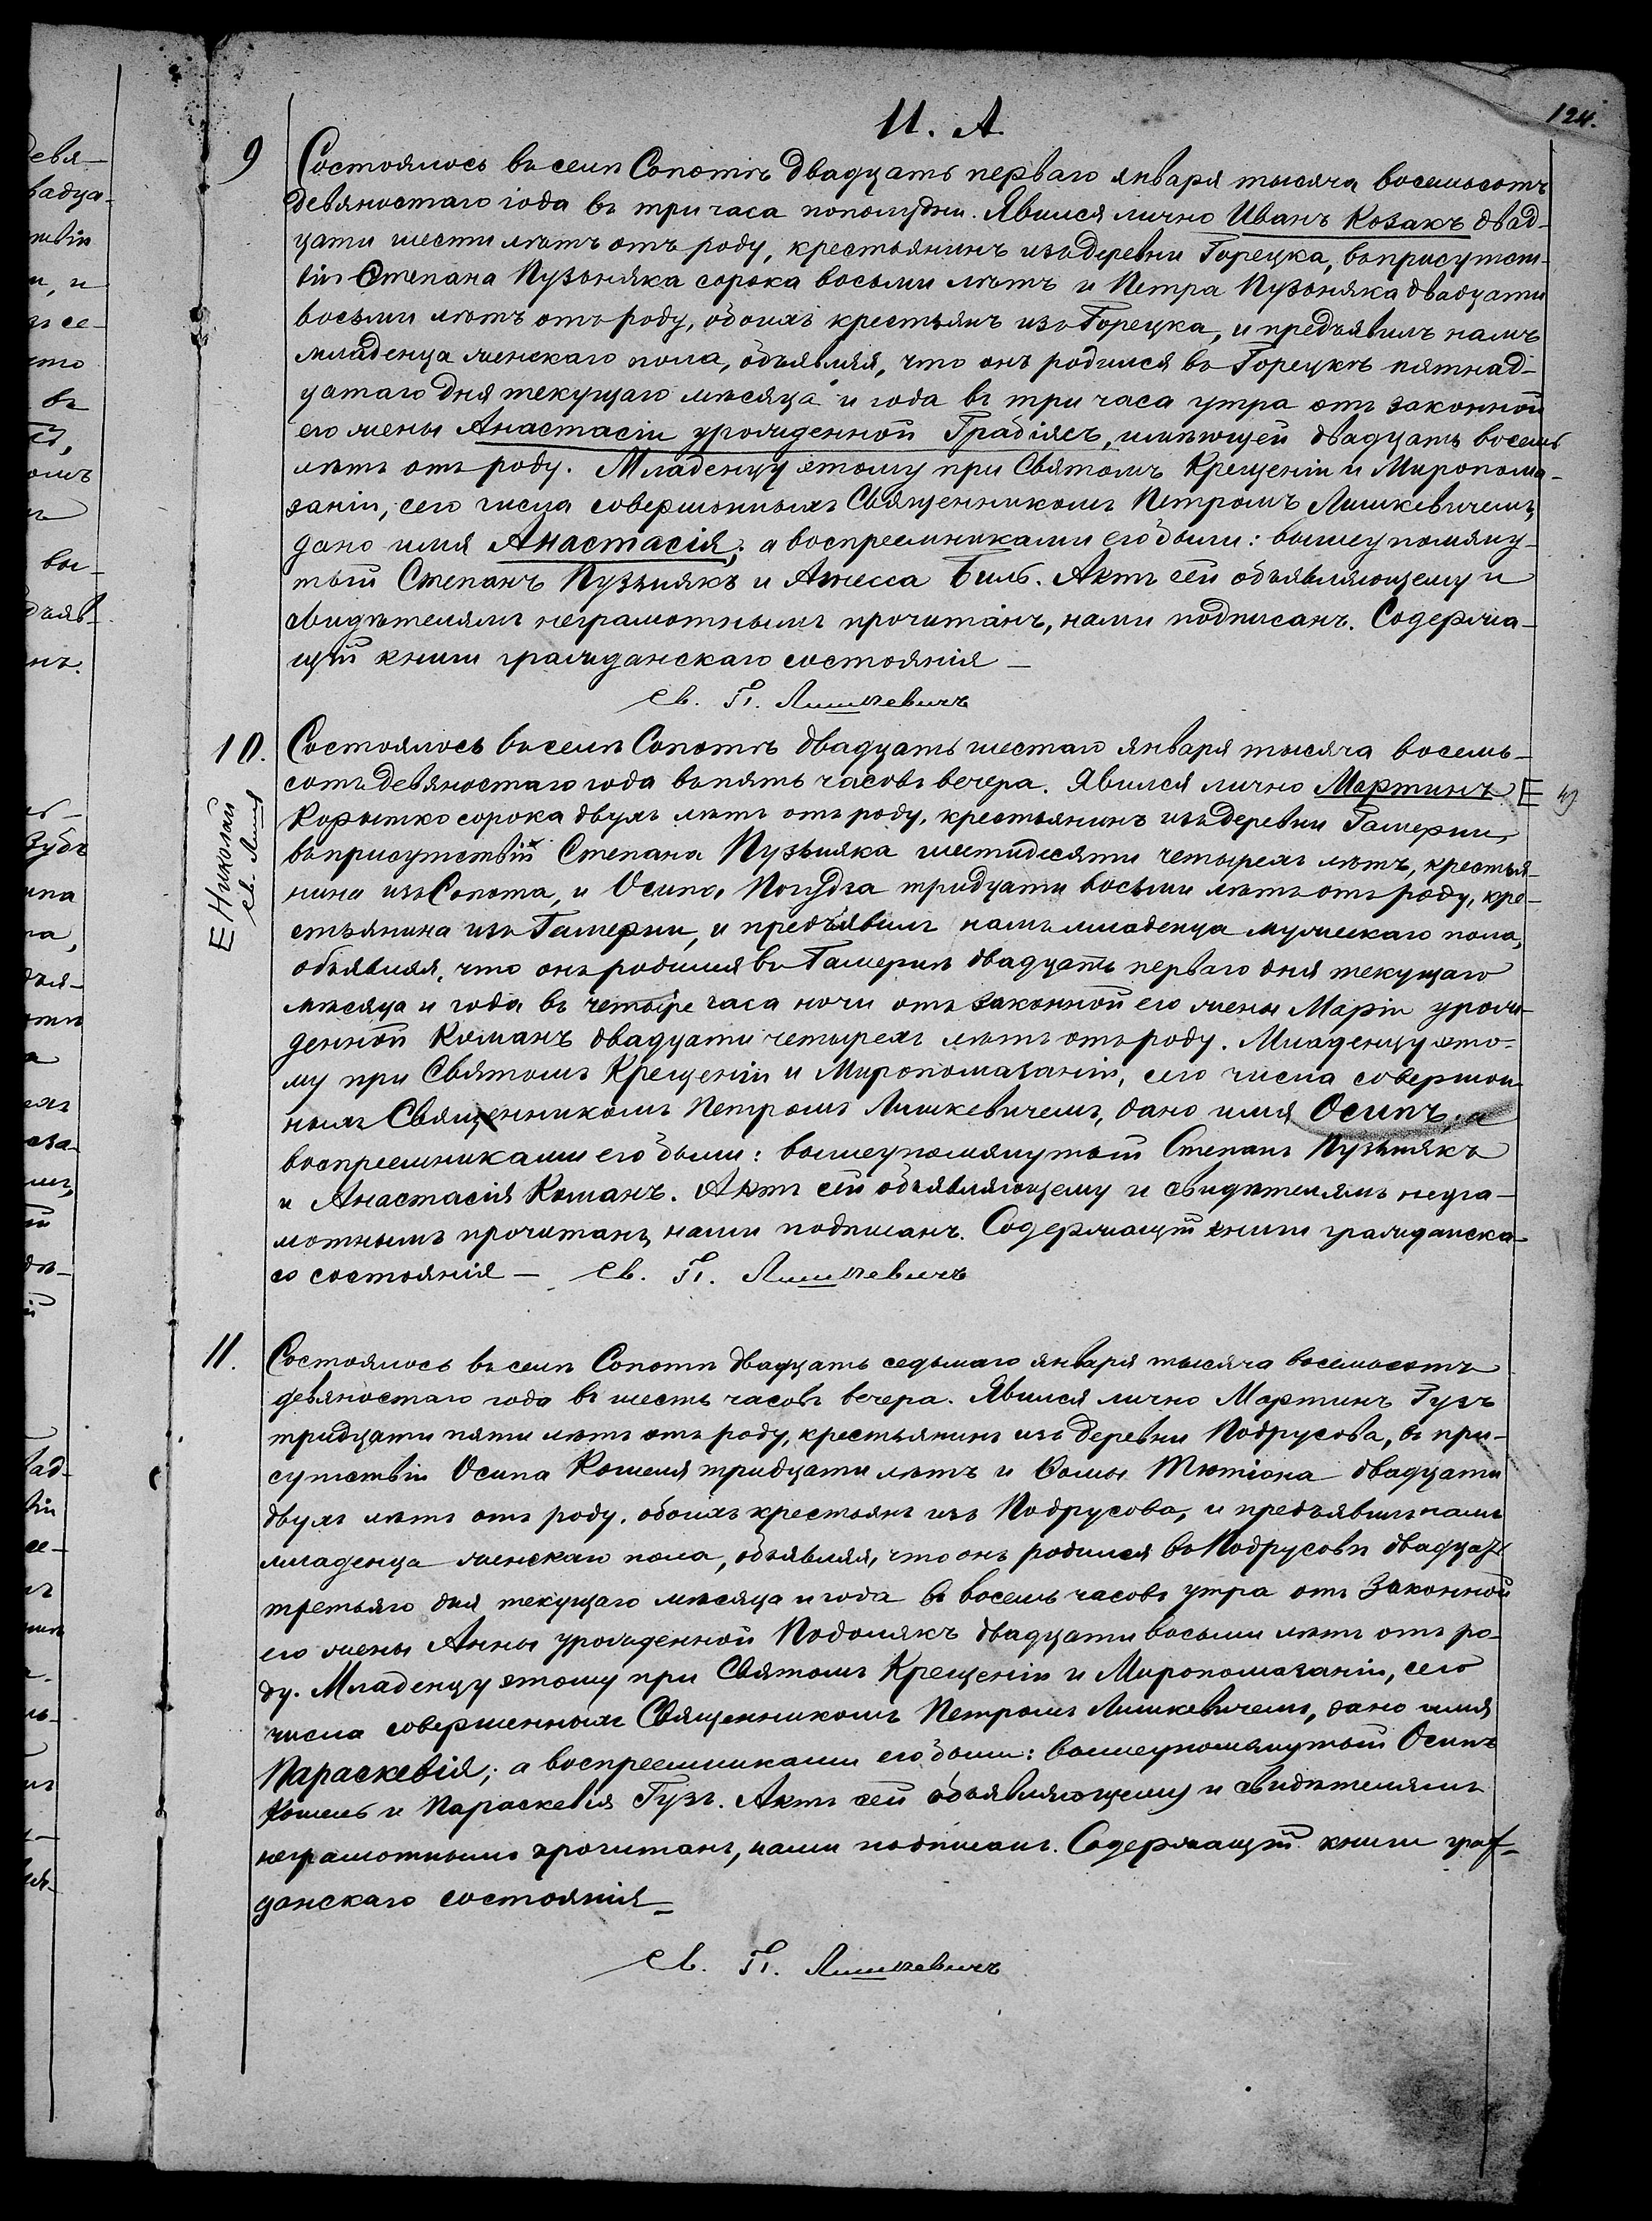 124.
11. А.
9
Состоялось въ селѣ Сопотѣ двадцать перваго января тысяча восемьсотъ
девяностаго года въ три часа пополудни. Явился лично Иванъ Козакъ двад-
цати шести лѣтъ отъ роду, крестьянинъ изъ деревни Горецка, въ присутст-
віи Степана Пузьняка сорока восьми лѣтъ и Петра Пузьняка двадцати
восьми лѣтъ отъ роду, обоихъ крестьянъ изъ Горецка, и предъявилъ намъ
младенца женскаго пола, объявляя, что онъ родился въ Горецкѣ пятнад-
цатаго дня текущаго мѣсяца и года въ три часа утра отъ законной
его жены Анастасіи урожденной Грабіясъ, имѣющей двадцать восемь
лѣтъ отъ роду. Младенцу этому при Святомъ Крещеніи и Миропома-
заніи, сего числа совершонныхъ Священникомъ Петромъ Лишкевичемъ,
дано имя Анастасія; а воспреемниками его были: вышеупомяну-
тый Степанъ Пузьнякъ и Агнесса Биль. Актъ сей объявляющему и
свидѣтелямъ неграмотнымъ прочитанъ, нами подписанъ. Содержа-
щій книги гражданскаго состоянія —
Св. П. Лишкевичъ
10.
Состоялось въ селѣ Сопотѣ двадцать шестаго января тысяча восемь-
сотъ девяностаго года въ пять часовъ вечера. Явился лично Мартинъ Е
Корытко сорока двухъ лѣтъ отъ роду, крестьянинъ изъ деревни Гамерни,
въ присутствіи Степана Пузьняка шестидесяти четырехъ лѣтъ, крестья-
нина изъ Сопота, и Осипа Погудза тридцати восьми лѣтъ отъ роду, кре-
стьянина изъ Гамерни, и предъявилъ намъ младенца мужескаго пола,
объявляя, что онъ родился въ Гамернѣ двадцать перваго дня текущаго
мѣсяца и года въ четыре часа ночи отъ законной его жены Маріи урож-
денной Команъ двадцати четырехъ лѣтъ отъ роду. Младенцу это-
му при Святомъ Крещеніи и Миропомазаніи, сего числа совершон-
ныхъ Священникомъ Петромъ Лишкевичемъ, дано имя Осипъ, а
воспреемниками его были: вышеупомянутый Степанъ Пузьнякъ
и Анастасія Команъ. Актъ сей объявляющему и свидѣтелямъ негра-
мотнымъ прочитанъ, нами подписанъ. Содержащій книги гражданска-
го состоянія — Св. П. Лишкевичъ
Е Николай
св. Лиш
11.
Состоялось въ селѣ Сопотѣ двадцать седьмаго января тысяча восемьсотъ
девяностаго года въ шесть часовъ вечера. Явился лично Мартинъ Гузъ
тридцати пяти лѣтъ отъ роду, крестьянинъ изъ деревни Подрусова, въ при-
сутствіи Осипа Комеля тридцати лѣтъ и Ѳомы Тютіона двадцати
двухъ лѣтъ отъ роду, обоихъ крестьянъ изъ Подрусова, и предъявилъ намъ
младенца женскаго пола, объявляя, что онъ родился въ Подрусовѣ двадцать
третьяго дня текущаго мѣсяца и года въ восемь часовъ утра отъ законной
его жены Анны урожденной Подолякъ двадцати восьми лѣтъ отъ ро-
ду. Младенцу этому при Святомъ Крещеніи и Миропомазаніи, сего
числа совершенныхъ Священникомъ Петромъ Лишкевичемъ, дано имя
Параскевія; а воспреемниками его были: вышеупомянутый Осипъ
Комель и Параскевія Гузъ. Актъ сей объявляющему и свидѣтелямъ
неграмотнымъ прочитанъ, нами подписанъ. Содержащій книги граж-
данскаго состоянія —
Св. П. Лишкевичъ